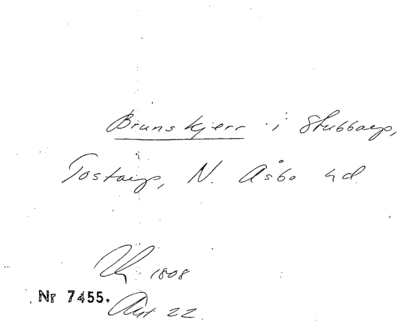 Brunskjerr i Stubbarp,
Tostarp, N. Åsbo hd
1808
Nr 7455.
Akt 22.